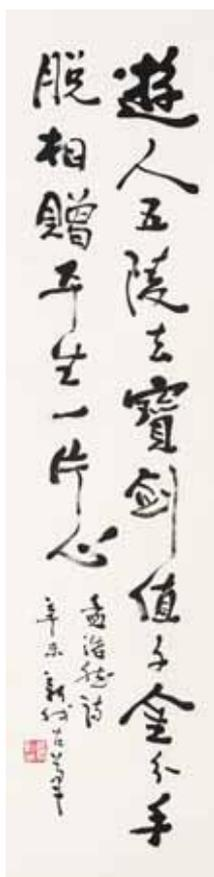 遊人五陵去寶劍值千金分手
脱相贈平生一片心
孟浩然詩
辛未